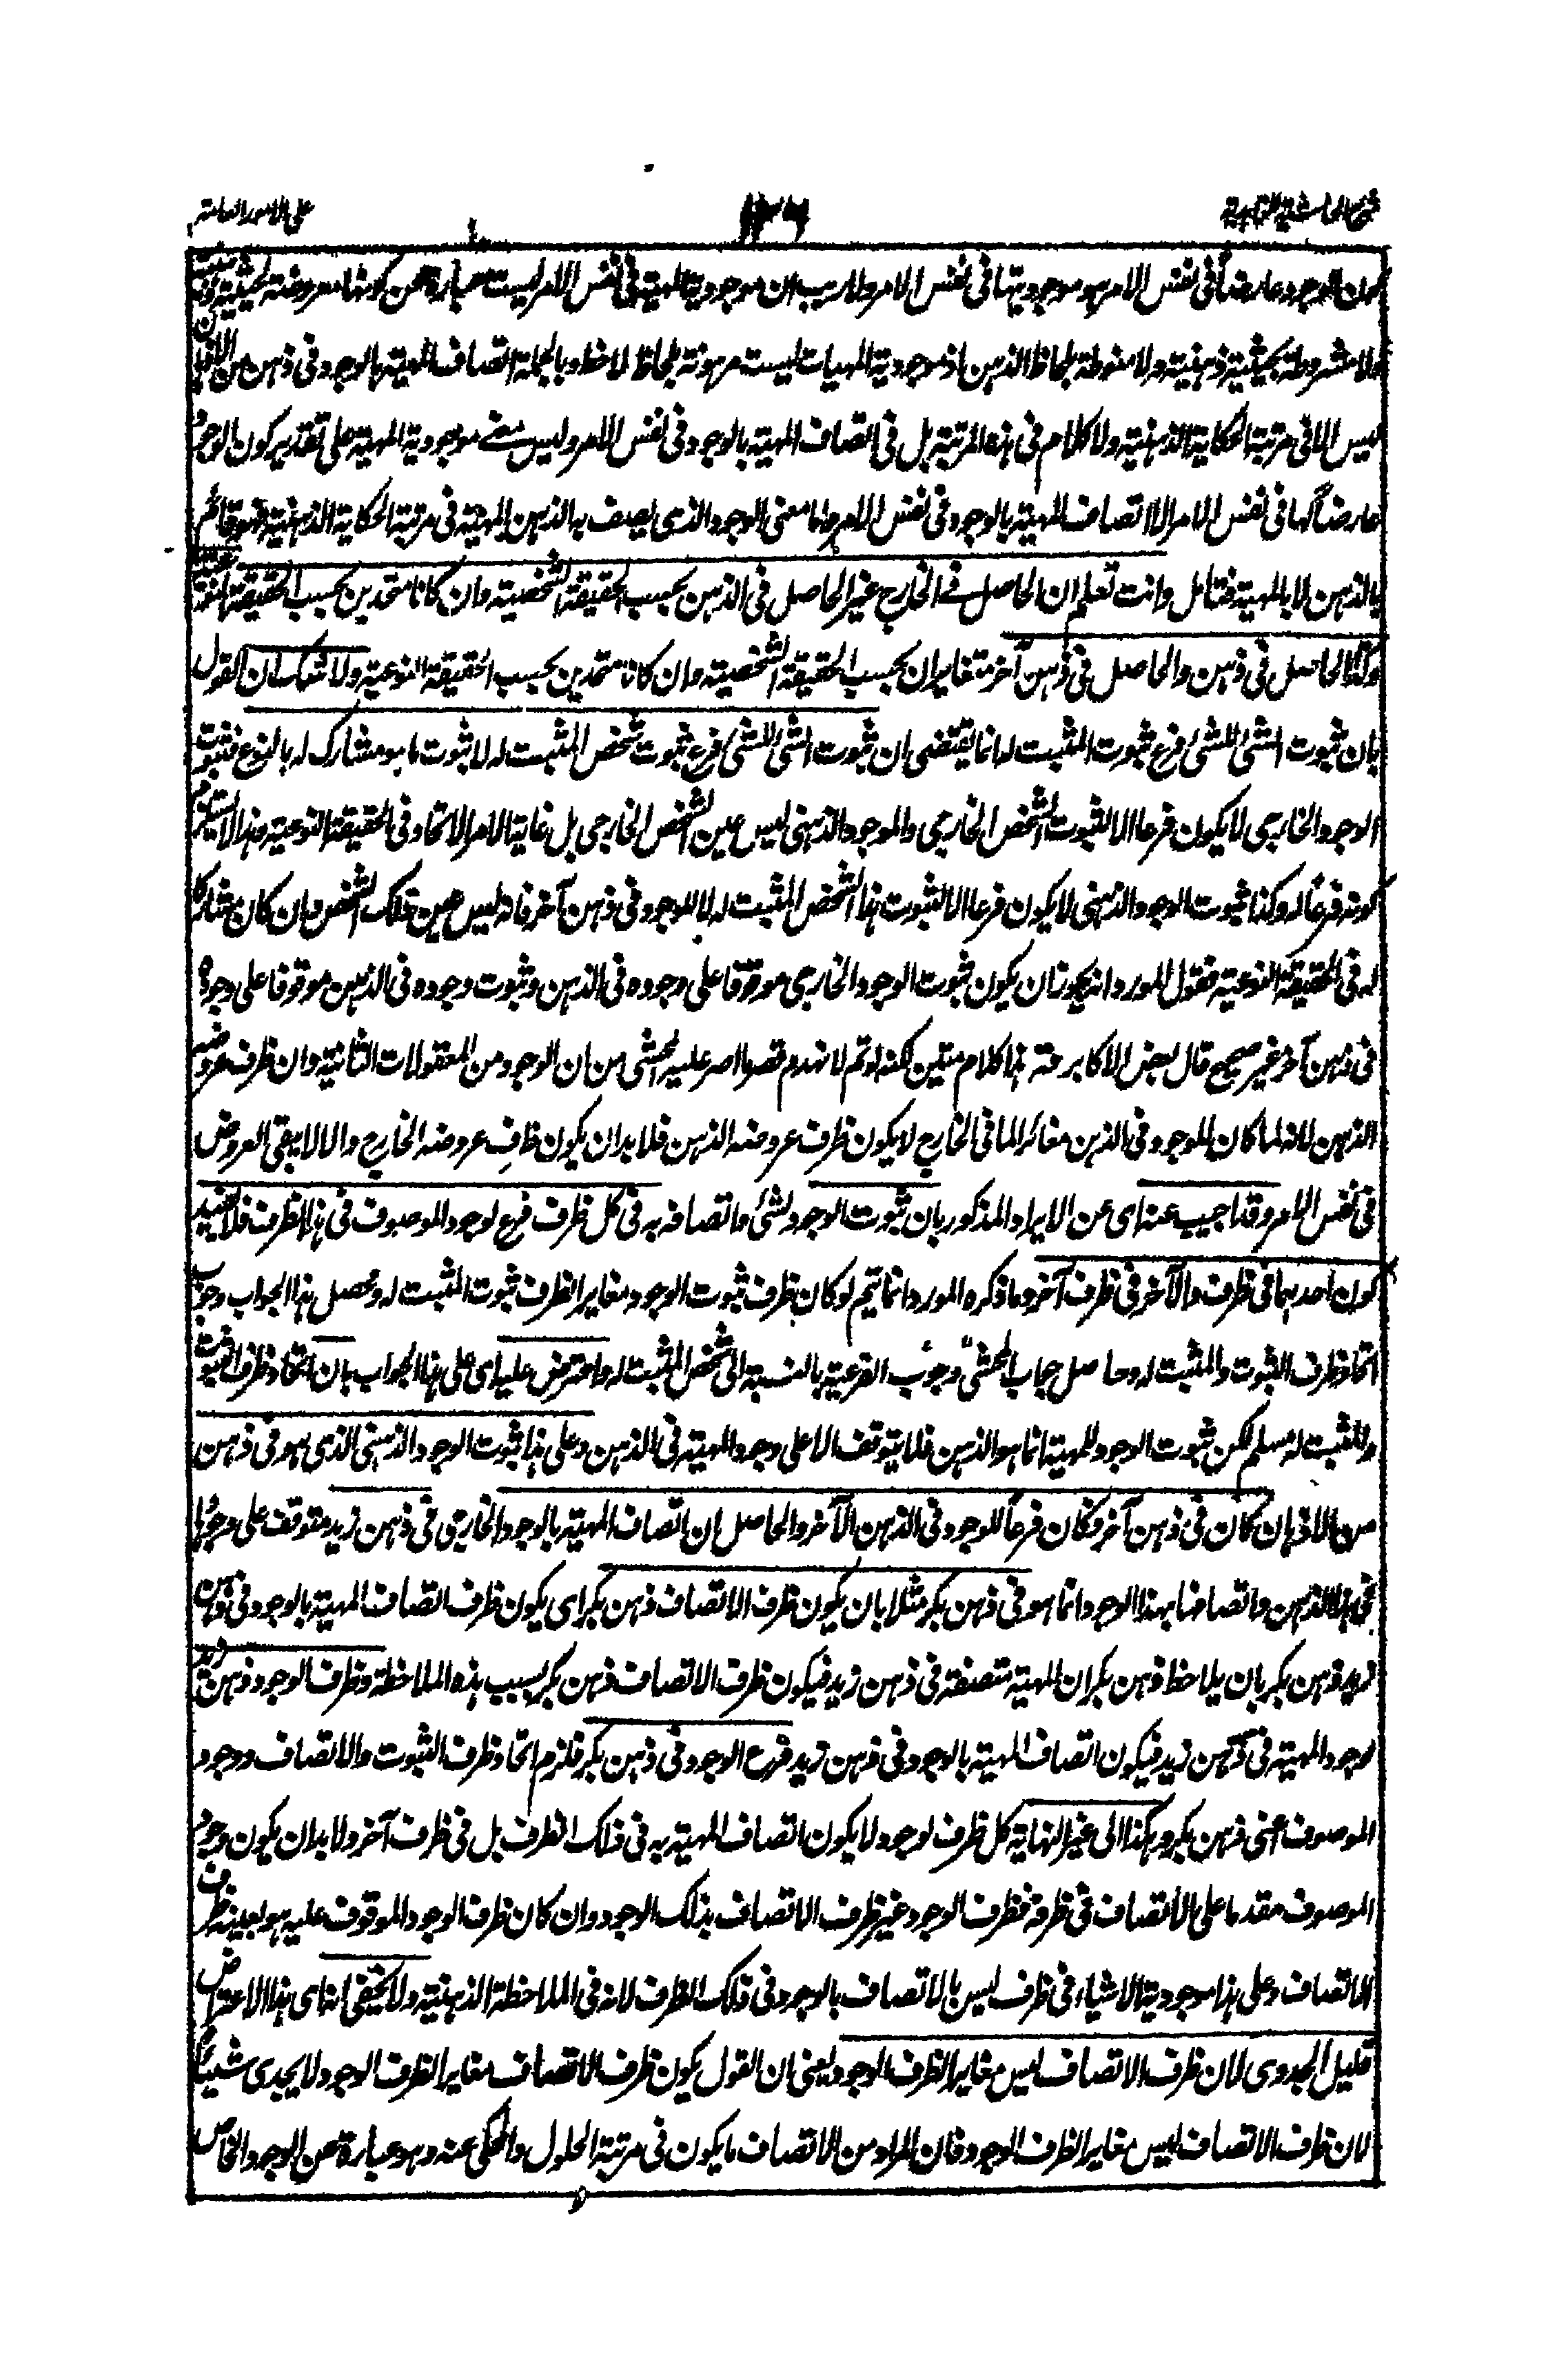 شرح الحاشية الزاهدية
١٣٦
على الامور العامة
كون الوجود عارضاً فى نفس الامر هو موجوديتها فى نفس الامر ولا ريب ان موجودية المهية فى نفس الامر ليست عبارة عن كونها معروضة لحيثية ذهنية
ولا مشروطة بحيثية ذهنية ولا منوطة بلحاظ الذهن اذ موجودية المهيات ليست مرهونة بلحاظ لاحظ وبالجملة اتصاف المهية بالوجود فى ذهن من الاذهان
ليس الا فى مرتبة الحكاية الذهنية ولا كلام فى هذه المرتبة بل فى اتصاف المهية بالوجود فى نفس الامر وليس معنے موجودية المهية على تقدير كون الوجود
عارضاً لها فى نفس الامر الا اتصاف المهية بالوجود فى نفس الامر واما معنى الوجود الذى يصف به الذهن المهية فى مرتبة الحكاية الذهنية فهو قائم
بالذهن لا بالمهية فتامل وانت تعلم ان الحاصل فے الخارج غير الحاصل فى الذهن بحسب الحقيقة الشخصية وان كانا متحدين بحسب الحقيقة النوعية
وكذا الحاصل فى ذهن والحاصل فى ذهن آخر متغايران بحسب الحقيقة الشخصية وان كانا متحدين بحسب الحقيقة النوعية ولا شك ان القول
بان ثبوت الشئ للشئ فرع ثبوت المثبت له انما يقتضى ان ثبوت الشئ للشئ فرع ثبوت شخص المثبت له لا ثبوت ما هو مشارك له بالنوع فثبوت
الوجود الخارجى لا يكون فرعا الا لثبوت الشخص الخارجى والموجود الذهنى ليس عين الشخص الخارجى بل غاية الامر الاتحاد فى الحقيقة النوعية وهذا لا يستلزم
كونه فرعاً له وكذا ثبوت الوجود الذهنى لا يكون فرعا الا لثبوت هذا الشخص المثبت له لا للوجود فى ذهن آخر فانه ليس عين ذلك الشخص وان كان مشاركا
له فى الحقيقة النوعية فقول المورد انه يجوز ان يكون ثبوت الوجود الخارجى موقوفا على وجوده فى الذهن وثبوت وجوده فى الذهن موقوفا على وجوده
فى ذهن آخر غير صحيح قال بعض الاكابر قه هذا كلام متين لكنه لو تم لانهدم قصوا اصر عليه المحشى من ان الوجود من المعقولات الثانية وان ظرف عروضه
الذهن لانه لما كان الموجود فى الذهن مغائرا لما فى الخارج لا يكون ظرف عروضه الذهن فلا بد ان يكون ظرف عروضه الخارج والا لا يبقى العروض
فى نفس الامر وقد اجيب عنه اى عن الايراد المذكور بان ثبوت الوجود لشئ واتصافه به فى كل ظرف فرع لوجود الموصوف فى هذا الظرف فلا يفيد
كون احدهما فى ظرف والآخر فى ظرف آخر وما ذكره المورد انما يتم لو كان ظرف ثبوت الوجود مغايرا لظرف ثبوت المثبت له ومحصل هذا الجواب وجوب
اتحاد ظرف الثبوت والمثبت له وحاصل جواب المحشى وجوب الفرعية بالنسبة الى شخص المثبت له واعترض عليه اى على هذا الجواب بان اتحاد ظرف الثبوت
والمثبت له مسلم لكن ثبوت الوجود للمهية انما هو الذهن فلا يتوقف الا على وجود المهية فى الذهن وعلى هذا ثبوت الوجود الذهنى الذى هو فى ذهن
من الاذهان كان فى ذهن آخر فكان فرعاً للوجود فى الذهن الآخر والحاصل ان اتصاف المهية بالوجود الخارجى فى ذهن زيد متوقف على وجودها
فى هذا الذهن واتصافها بهذا الوجود انما هو فى ذهن بكر مثلا بان يكون ظرف الاتصاف ذهن بكر اى يكون ظرف اتصاف المهية بالوجود فى ذهن
زيد ذهن بكر بان يلاحظ ذهن بكر ان المهية متصفة فى ذهن زيد فيكون ظرف الاتصاف ذهن بكر بسبب هذه الملاحظة وظرف الوجود ذهن زيد
لوجود المهية فى ذهن زيد فيكون اتصاف المهية بالوجود فى ذهن زيد فرع الوجود فى ذهن بكر فلزم اتحاد ظرف الثبوت والاتصاف ووجود
الموصوف اعنى ذهن بكر وهكذا الى غير النهاية كل ظرف لوجود لا يكون اتصاف المهية به فى ذلك الظرف بل فى ظرف آخر ولا بد ان يكون وجود
الموصوف مقدما على الاتصاف فى ظرفه فظرف الوجود غير ظرف الاتصاف بذلك الوجود وان كان ظرف الوجود الموقوف عليه هو بعينه ظرف
الاتصاف وعلى هذا موجودية الاشياء فى ظرف ليس بالاتصاف بالوجود فى ذلك الظرف لانه فى الملاحظة الذهنية ولا يخفى انه اى هذا الاعتراض
قليل الجدوى لان ظرف الاتصاف ليس مغايرا لظرف الوجود يعنى ان القول بكون ظرف الاتصاف مغايرا لظرف الوجود لا يجدى شيئاً
لان ظرف الاتصاف ليس مغايرا لظرف الوجود فان المراد من الاتصاف ما يكون فى مرتبة الحلول والمحكى عنه وهو عبارة عن الوجود الخاص